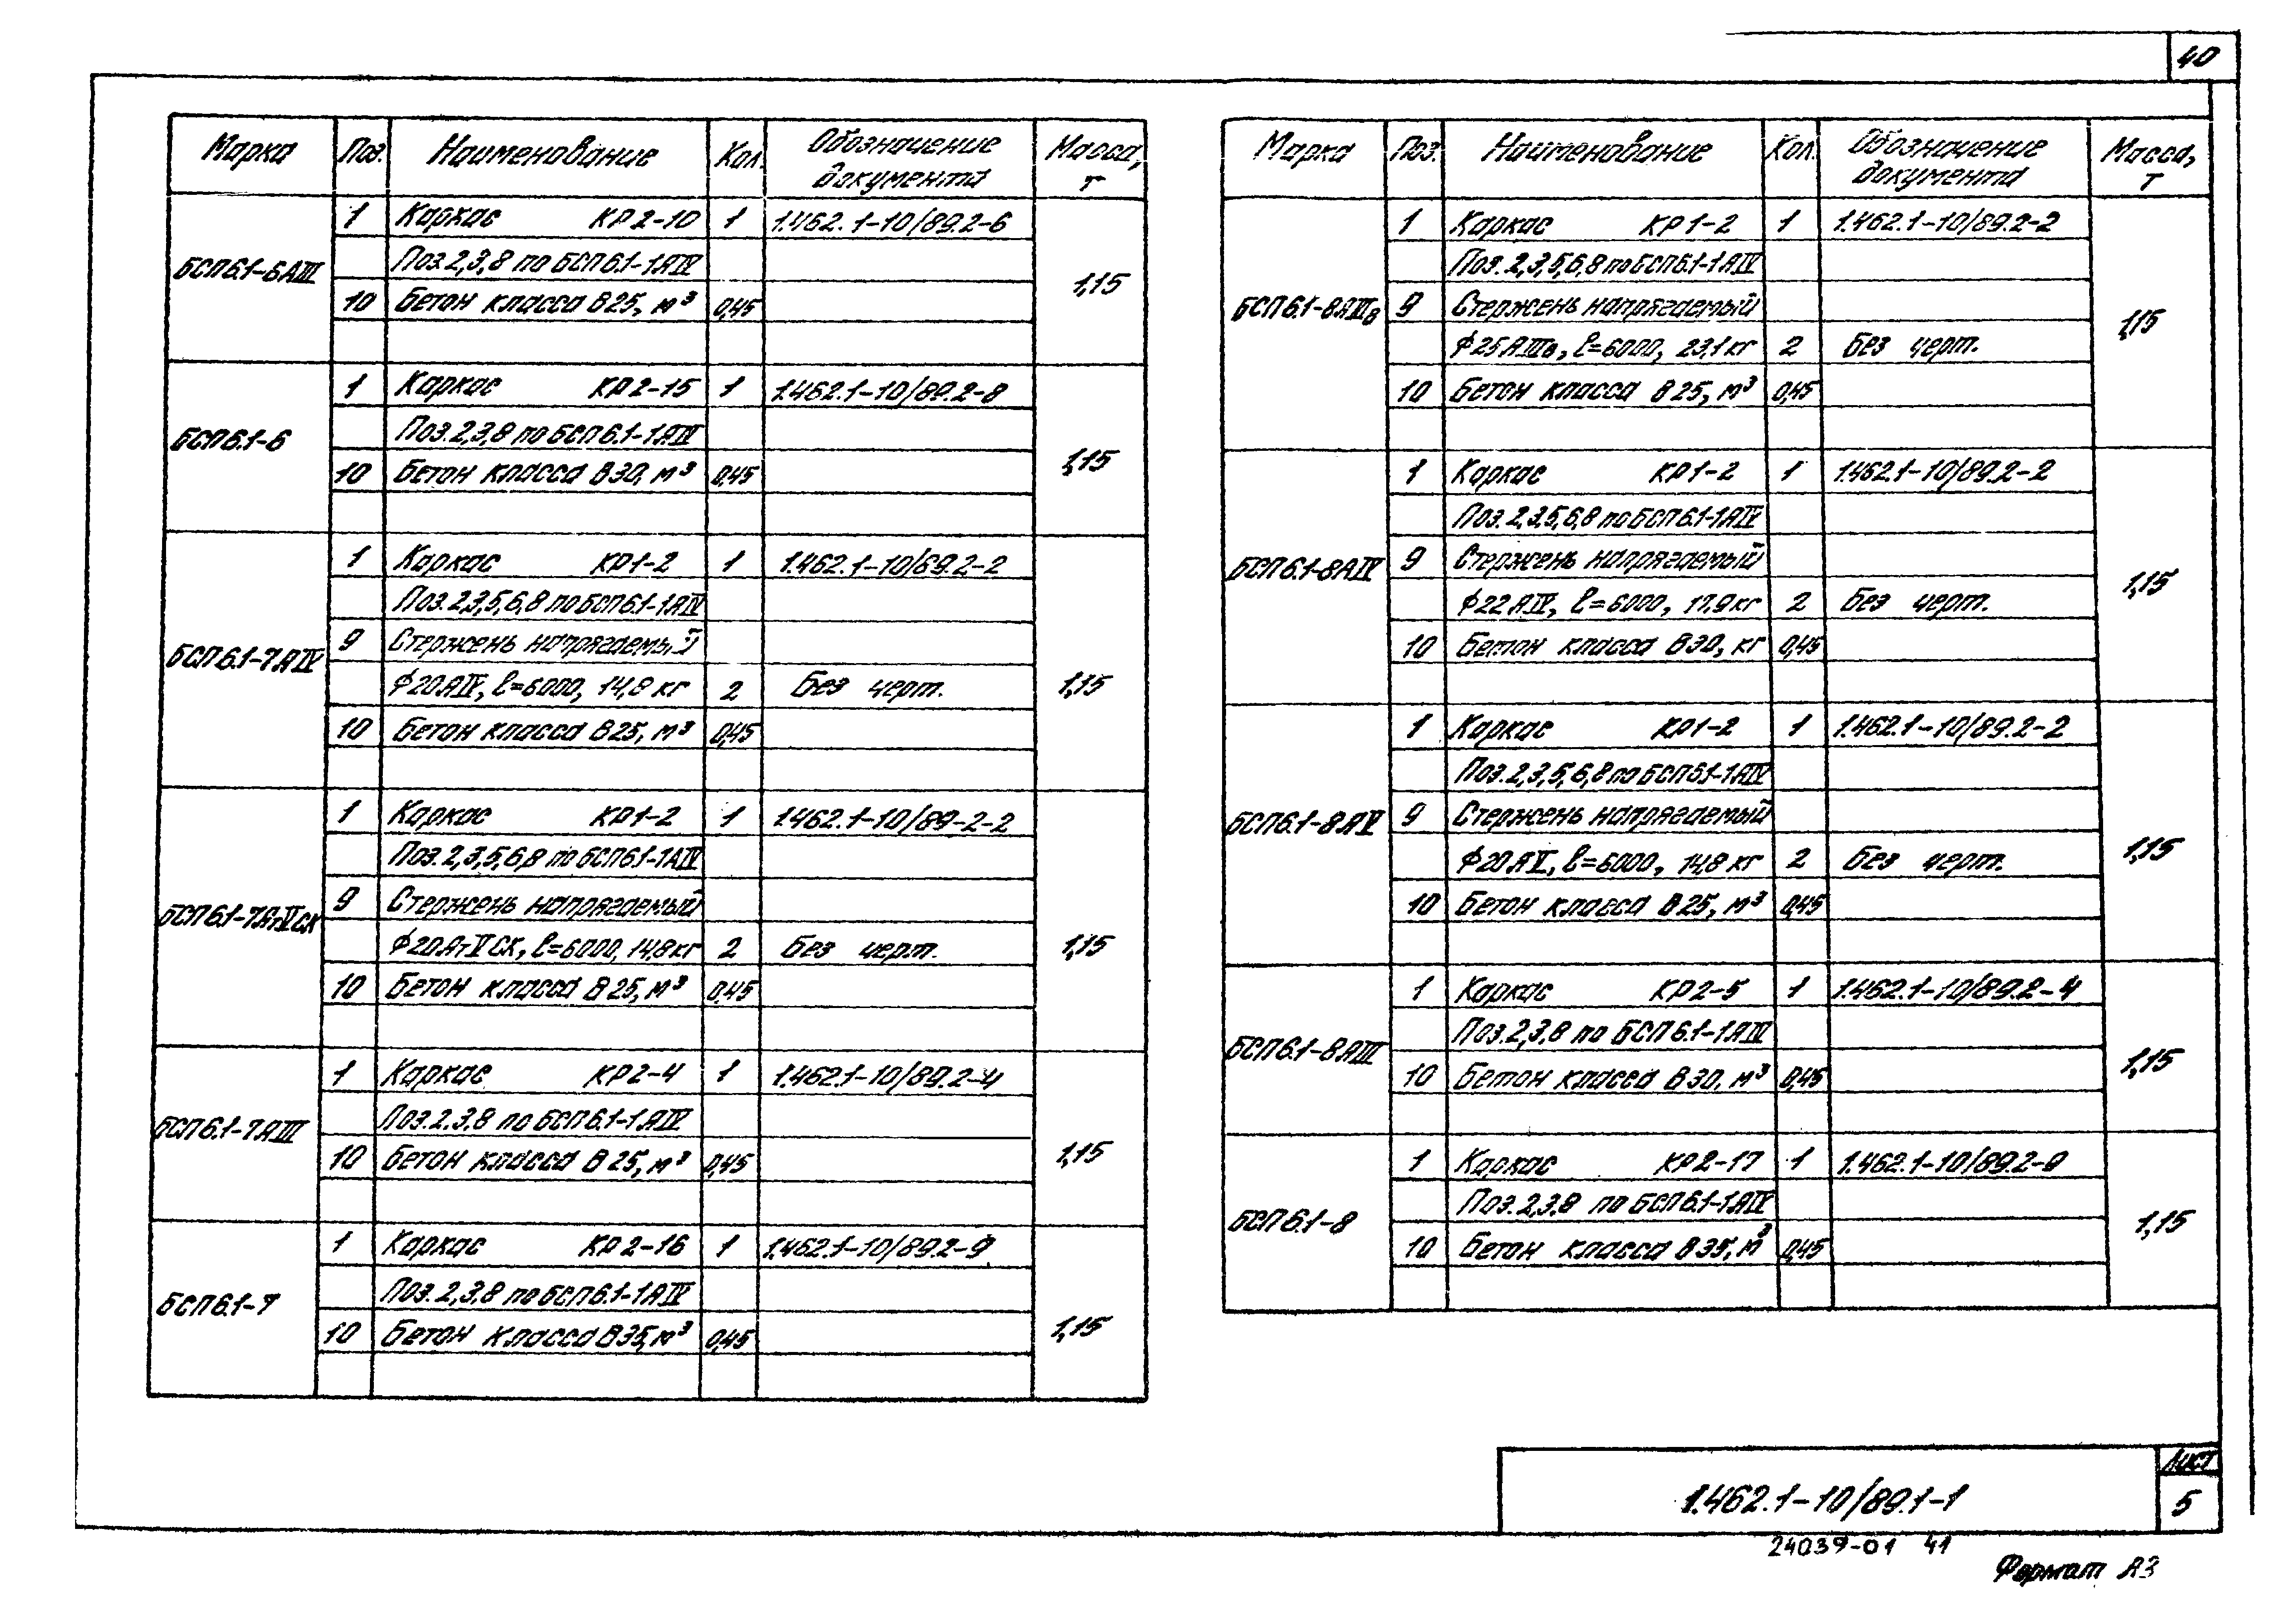 40
Марка Поз. Наименование Кол. Обозначение документа Масса, т
БСП6.1-6АIII 1,15
1 Каркас КР2-10 1 1.462.1-10/89.2-6
Поз.2,3,8 по БСП6.1-1АIV
10 Бетон класса В25, м³ 0,45
БСП6.1-6 1,15
1 Каркас КР2-15 1 1.462.1-10/89.2-8
Поз.2,3,8 по БСП6.1-1АIV
10 Бетон класса В30, м³ 0,45
БСП6.1-7АIV 1,15
1 Каркас КР1-2 1 1.462.1-10/89.2-2
Поз.2,3,5,6,8 по БСП6.1-1АIV
9 Стержень напрягаемый
ϕ20АIV, ℓ=6000, 14,8 кг 2 Без черт.
10 Бетон класса В25, м³ 0,45
БСП6.1-7АтVСК 1,15
1 Каркас КР1-2 1 1.462.1-10/89-2-2
Поз.2,3,5,6,8 по БСП6.1-1АIV
9 Стержень напрягаемый
ϕ20АтVСК, ℓ=6000, 14,8 кг 2 Без черт.
10 Бетон класса В25, м³ 0,45
БСП6.1-7АIII 1,15
1 Каркас КР2-4 1 1.462.1-10/89.2-4
Поз.2.3.8 по БСП6.1-1АIV
10 Бетон класса В25, м³ 0,45
БСП6.1-7 1,15
1 Каркас КР2-16 1 1.462.1-10/89.2-9
Поз.2,3,8 по БСП6.1-1АIV
10 Бетон класса В35, м³ 0,45
Марка Поз. Наименование Кол. Обозначение документа Масса, т
БСП6.1-8АIIIв 1,15
1 Каркас КР1-2 1 1.462.1-10/89.2-2
Поз.2,3,5,6,8 по БСП6.1-1АIV
9 Стержень напрягаемый
ϕ25АIIIв, ℓ=6000, 23,1 кг 2 Без черт.
10 Бетон класса В25, м³ 0,45
БСП6.1-8АIV 1,15
1 Каркас КР1-2 1 1.462.1-10/89.2-2
Поз.2,3,5,6,8 по БСП6.1-1АIV
9 Стержень напрягаемый
ϕ22АIV, ℓ=6000, 17,9 кг 2 Без черт.
10 Бетон класса В30, кг 0,45
БСП6.1-8АV 1,15
1 Каркас КР1-2 1 1.462.1-10/89.2-2
Поз.2,3,5,6,8 по БСП6.1-1АIV
9 Стержень напрягаемый
ϕ20АV, ℓ=6000, 14,8 кг 2 Без черт.
10 Бетон класса В25, м³ 0,45
БСП6.1-8АIII 1,15
1 Каркас КР2-5 1 1.462.1-10/89.2-4
Поз.2,3,8 по БСП6.1-1АIV
10 Бетон класса В30, м³ 0,45
БСП6.1-8 1,15
1 Каркас КР2-17 1 1.462.1-10/89.2-9
Поз.2,3,8 по БСП6.1-1АIV
10 Бетон класса В35, м³ 0,45
1.462.1-10/89.1-1
Лист
5
24039-01 41
Формат А3